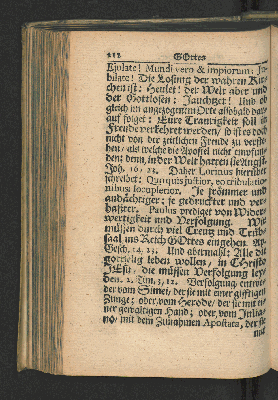 212 GOttes
Ejulate! Mundi vero & impiorum: Ju-
bilate! Die Losung der wahren Kir-
chen ist: Heulet! der Welt aber und
der Gottlosen: Jauchzet! Und ob
gleich im angezogenem Orte alsobald dar-
auf folget: Eure Traurigkeit soll in
Freude verkehret werden/ so ist es doch
nicht von der zeitlichen Freude zu verste-
hen/ als welche die Apostel nicht empfun-
den; denn, in der Welt hatten sie Angst.
Joh. 16, 33. Daher Lorinus hierüber
schreibet: Quo quis justior, eo tribulatio-
nibus locupletior. Je frömmer und
andächtiger; je gedruckter und ver-
haßter. Paulus prediget von Wider-
wertigkeit und Verfolgung. Wir
müssen durch viel Creutz und Trüb-
saal ins Reich GOttes eingehen. Ap.
Gesch. 14, 23. Und abermahl: Alle die
gottselig leben wollen, in CHristo
JEsu, die müssen Verfolgung ley-
den. 2. Tim. 3, 12. Verfolgung, entwe-
der vom Simei, der sie mit einer gifftigen
Zunge; oder, vom Herode, der sie mit ei-
ner gewaltigen Hand; oder, vom Julia-
no, mit dem Zunahmen Apostata, der sie
mit